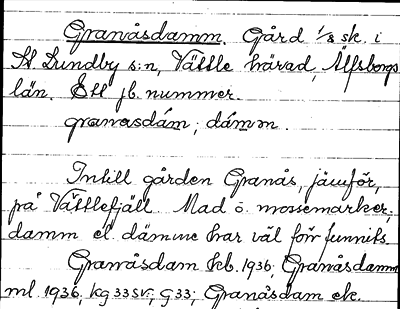 Granåsdamm. Gård 1/8 sk. i
St Lundby s:n, Vättle härad, Älfsborgs
län. Ett jb. nummer.
granasdám; dámm.
Intill gården Granås, jämför,
på Vättlefjäll. Mad o. mossemarker;
damm el. dämme har väl förr funnits
Granåsdam kb. 1936; Granåsdamm
ml. 1936, kg 33 sv., g 33; Granåsdam ek.